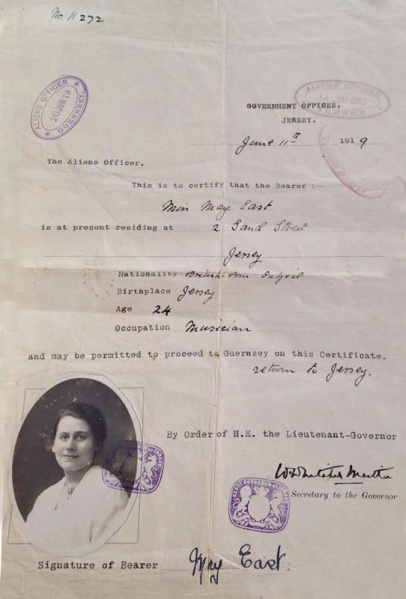 No 11272
ALIENS OFFICER
20 JUN 19
GUERNSEY
ALIENS OFFICER
JERSEY
GOVERNMENT OFFICES,
JERSEY.
June 11th 1919
The Aliens Officer.
This is to certify that the Bearer :-
Miss May East
is at present residing at 2 Sand Street
Jersey
Nationality British-born
Birthplace Jersey
Age 24
Occupation Musician
and may be permitted to proceed to Guernsey on this Certificate.
return to Jersey.
By Order of H.E. the Lieutenant-Governor
Secretary to the Governor
Signature of Bearer May East.